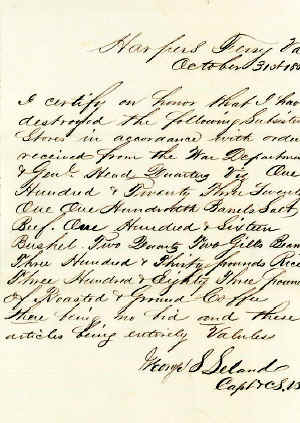 Harpers Ferry Va
October 31st 186
I certify on honor that I had
destroyed the following Subsiste
Stores in accordance with orde
received from the War Departmen
& Genl. Head Quarters Viz One
Hundred & Twenty Three Twent
One One Hundredth Barrels Salt
Beef. One Hundred & Sixteen
Bushel Two Quarts Two Gills Bean
Three Hundred & Thirty pounds Roa
Three Hundred & Eighty Three pound
of Roasted & Ground Coffee
There being no bid and these
articles being entirely Valuless
George S Leland
Capt & C.S.